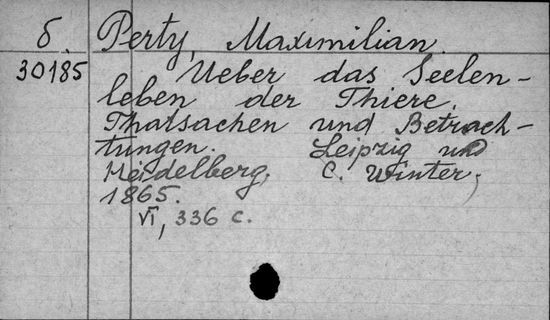 б. Perty, Maximilian.
30185 Ueber das Seelen-
leben der Thiere.
Thatsachen und Betrach-
tungen. Leipzig und
Heidelberg, C. Winter,
1865.
VI, 336 c.